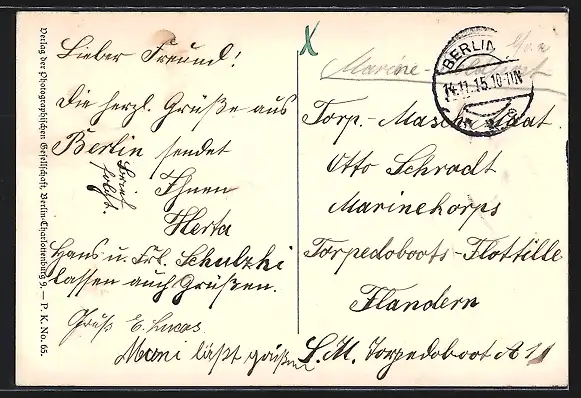 Verlag der Photographischen Gesellschaft, Berlin-Charlottenburg 9. — P. K. No. 65.
Lieber Freund!
Die herzl. Grüße aus
Berlin sendet
Ihnen
Herta
Brief
folgt.
Hans u. Frl. Schulzki
lassen auch Grüßen.
Gruß E. Lucas
Mimi läßt grüßen
Marine -
BERLIN
14.11.15.10-11N
Torp. - Masch. Maat
Otto Schrodt
Marinekorps
Torpedoboots - Flottille
Flandern
S. M. Torpedoboot A 11